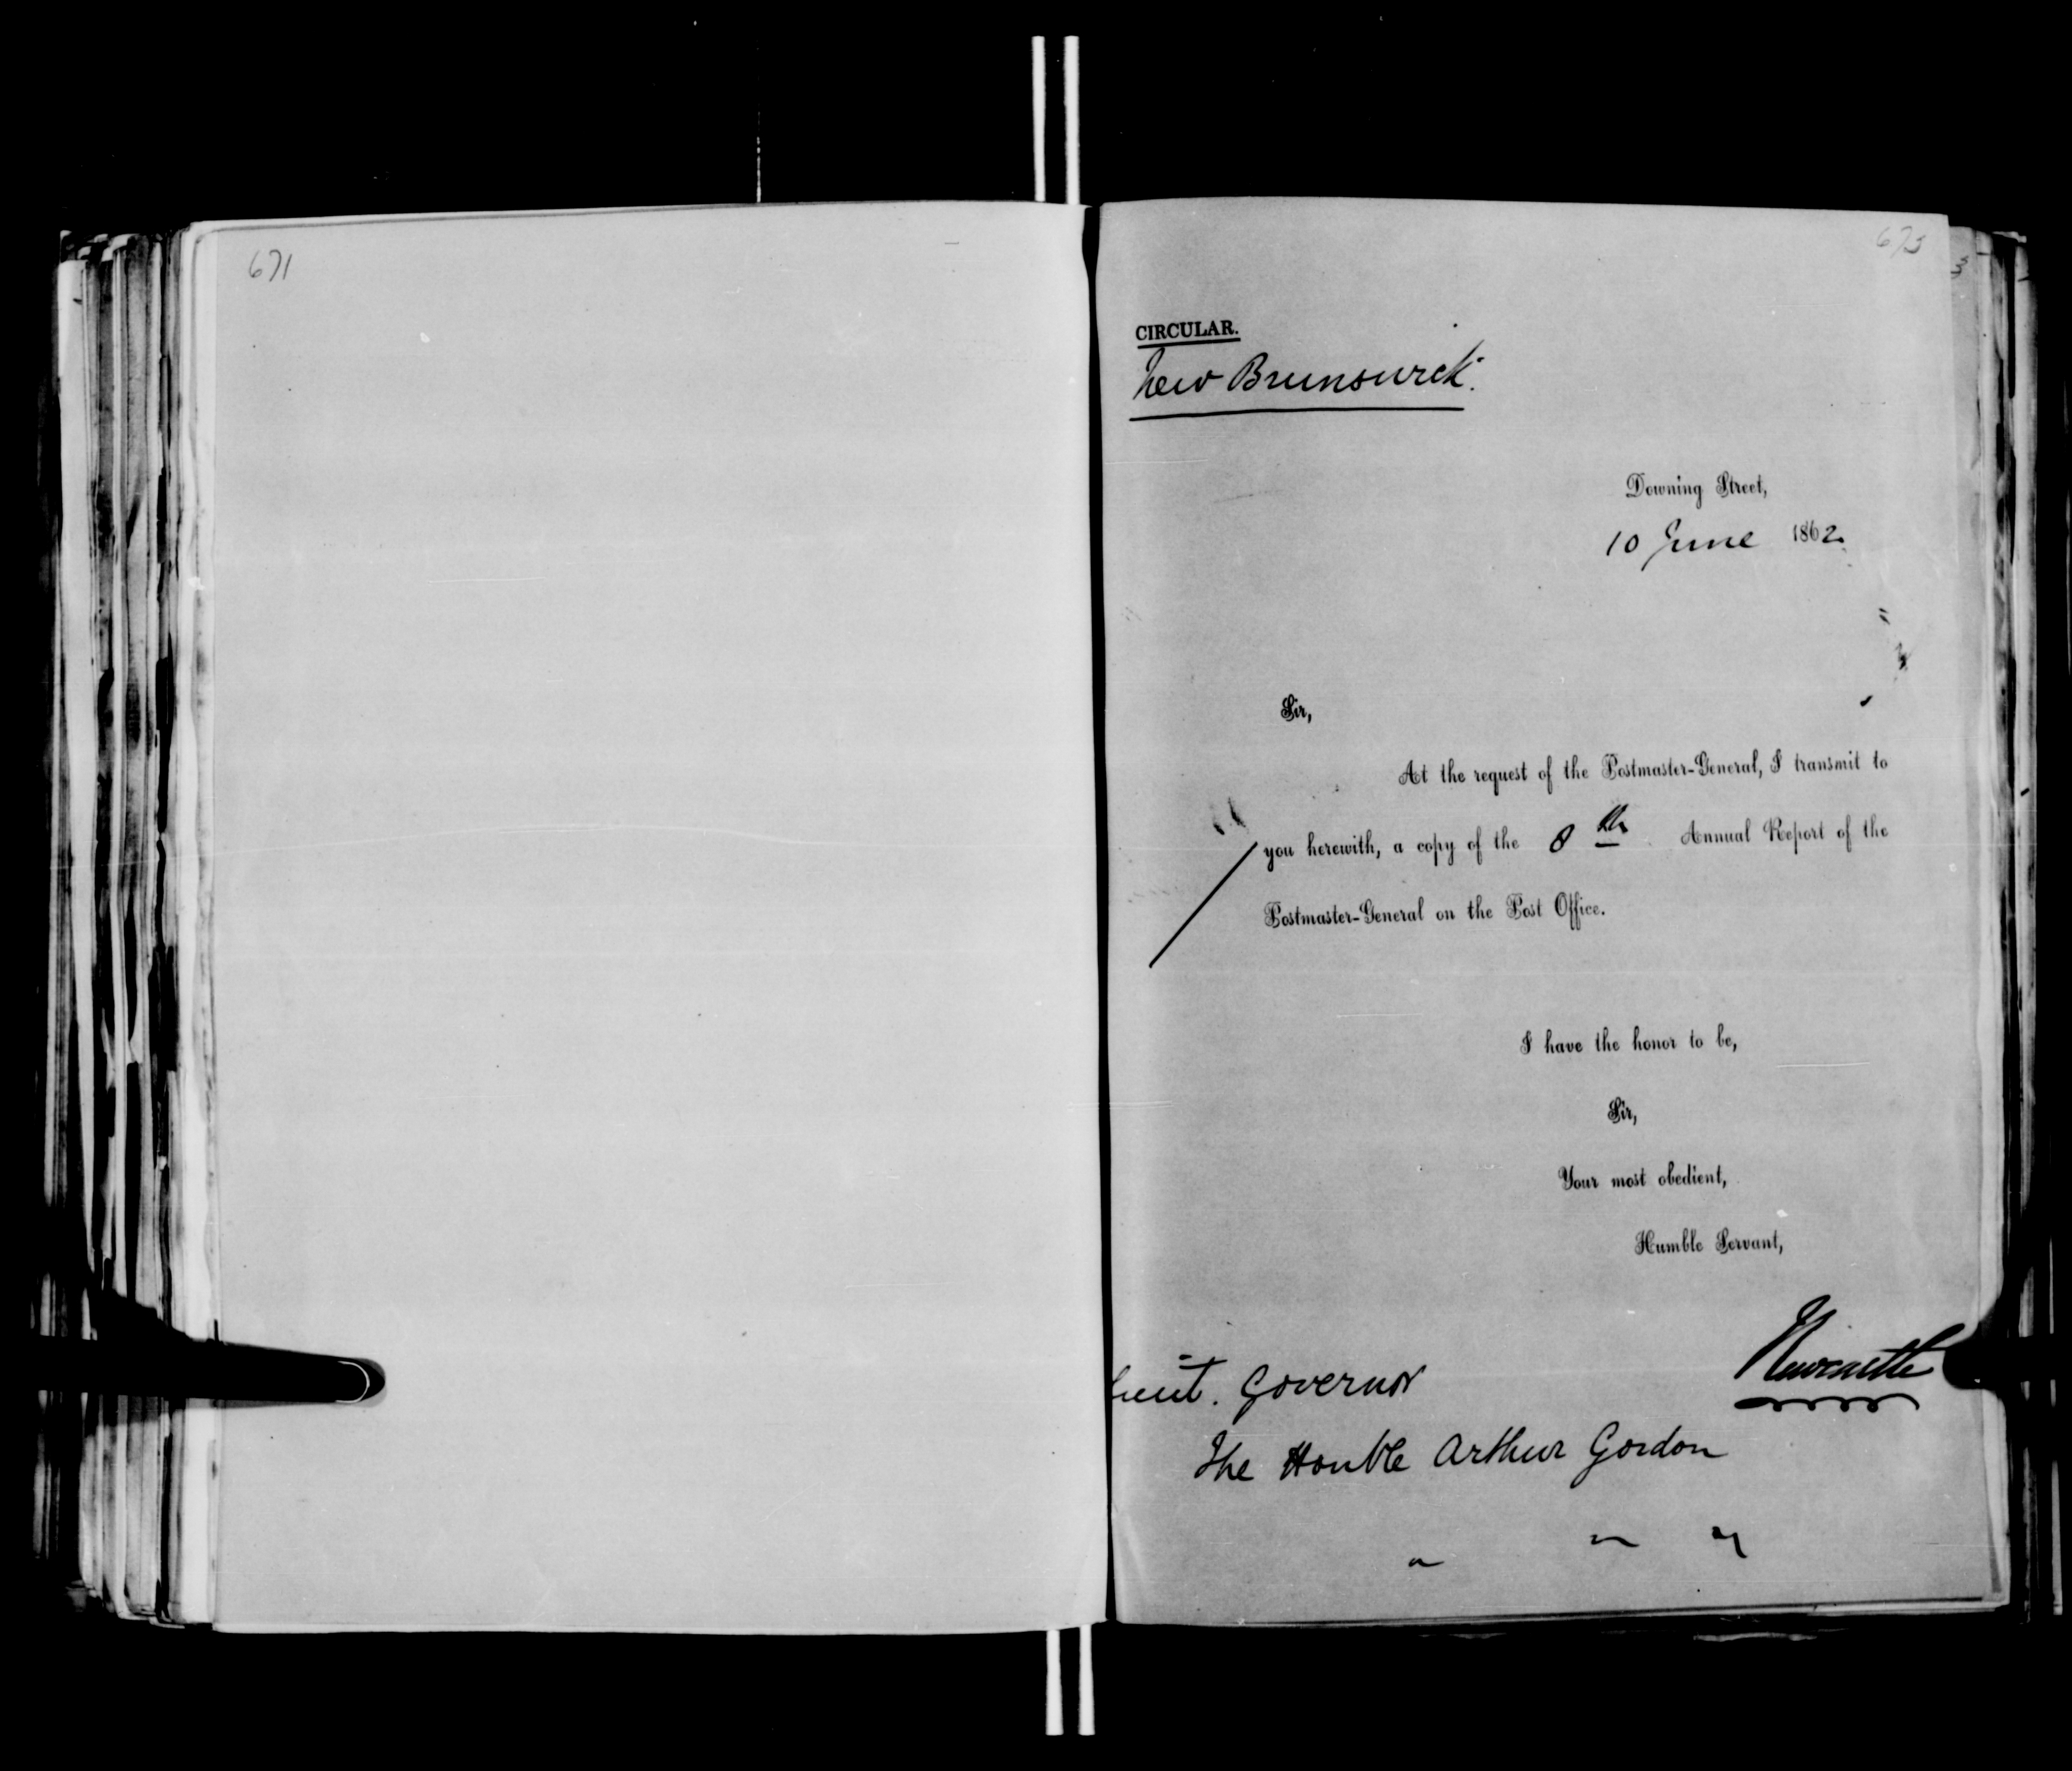 671
CIRCULAR.
New Brunswick.
Downing Street,
10 June 1862.
Sir,
At the request of the Postmaster-General, I transmit to
you herewith, a copy of the 8th Annual Report of the
Postmaster-General on the Post Office.
I have the honor to be,
Sir,
Your most obedient,
Humble Servant,
Newcastle
Lieut. Governor
The Honble Arthur Gordon